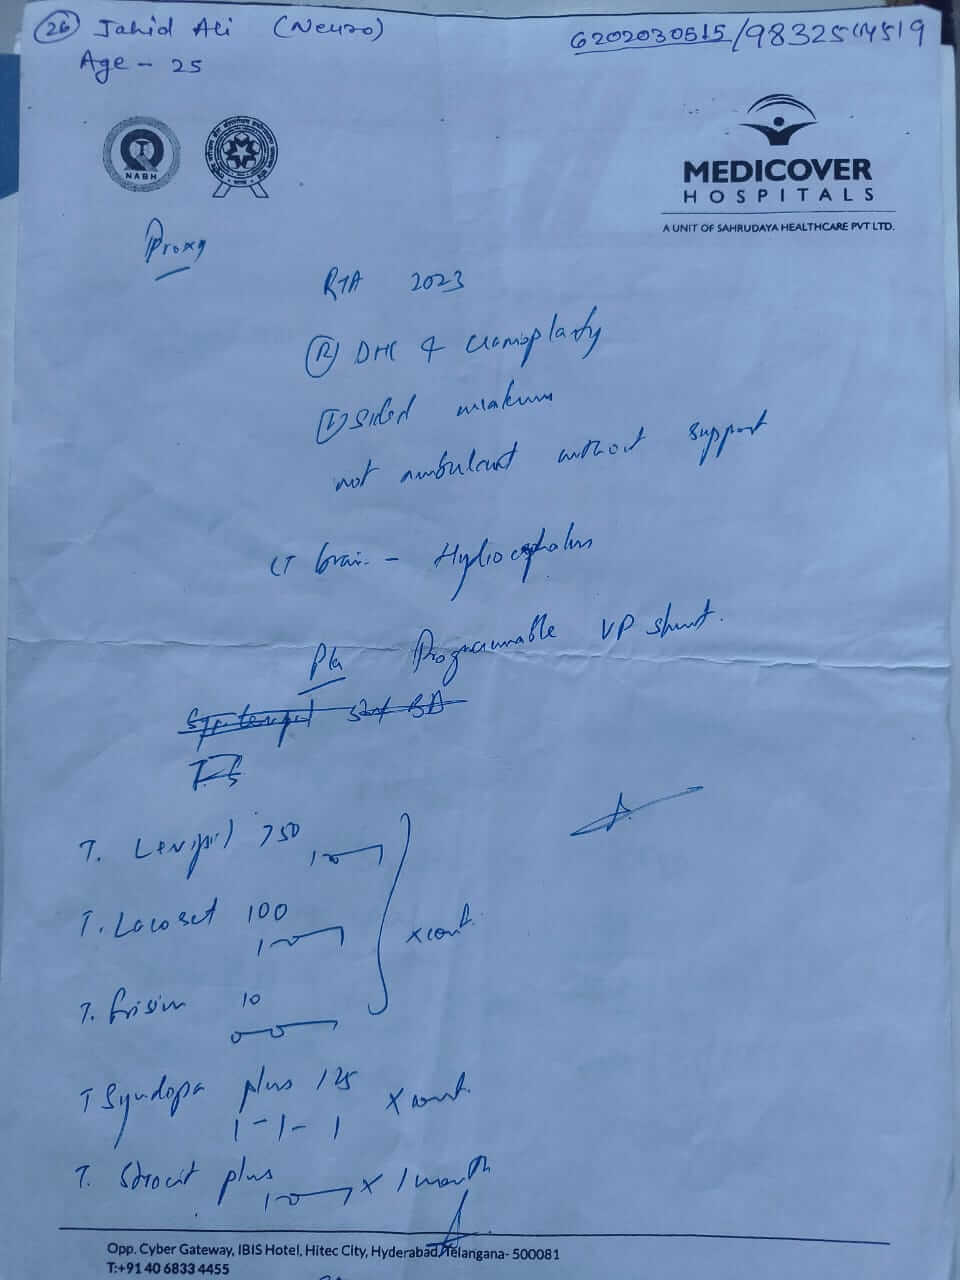 26 Jahid Ali (Neuro)
6202030515/9832514519
Age - 25
NABH
MEDICOVER
HOSPITALS
A UNIT OF SAHRUDAYA HEALTHCARE PVT LTD.
Proxy
RTA 2023
R DHC & cranioplasty
L sided weakness
not ambulant without support
CT brain - Hydrocephalus
Pla Programmable VP shunt.
T. Levipil 750 1-0-1
T. Lacoset 100 1-0-1
x cont.
T. Frisium 10 0-0-1
T Syndopa plus 125 x cont.
1-1-1
T. Strocit plus 1-0-1 x 1 month
Opp. Cyber Gateway, IBIS Hotel, Hitec City, Hyderabad, Telangana- 500081
T:+91 40 6833 4455